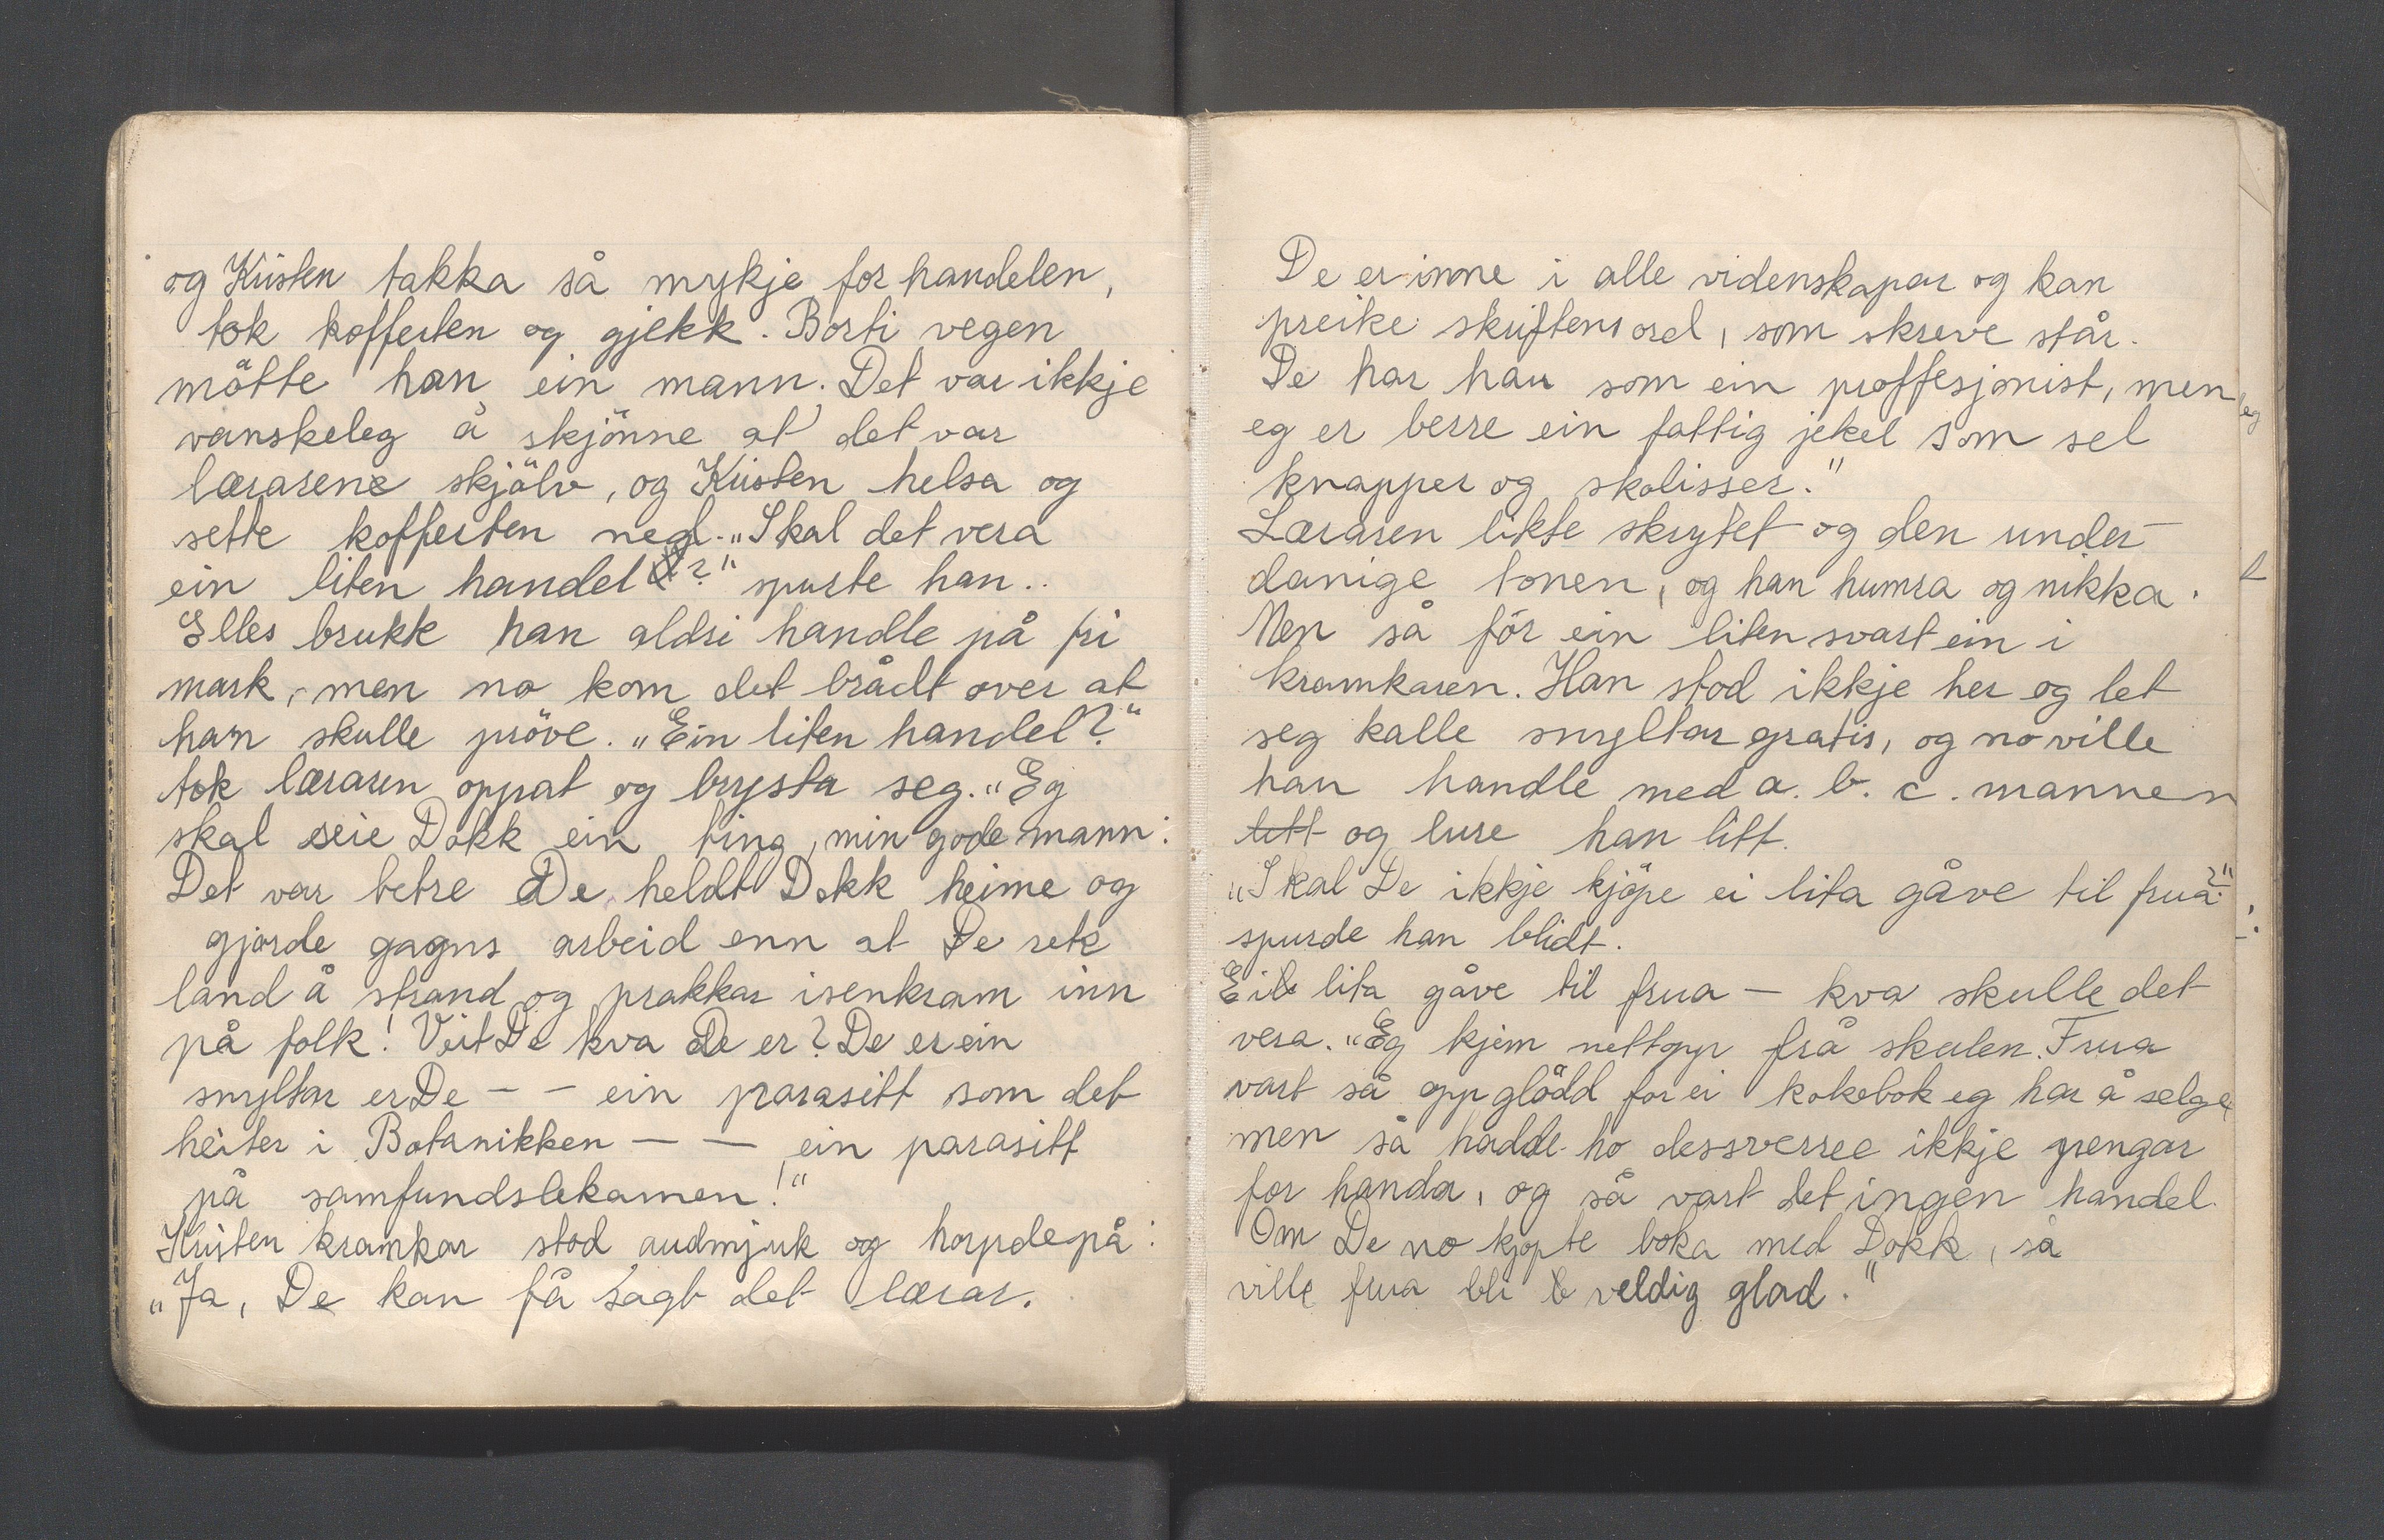 og Kristen takka så mykje for handelen,
tok kofferten og gjekk. Borti vegen
mötte han ein mann. Det var ikkje
vanskeleg å skjönne at det var
lærarene skjölv, og Kristen helsa og
sette kofferten ned. „Skal det vera
ein liten handel?" spurte han..
Elles brukk han aldri handle på fri
mark, men no kom det brådt over at
han skulle pröve. „Ein liten handel?"
tok læraren oppat og brysta seg. „Eg
skal seie Dokk ein ting, min gode mann:
Det var betre De heldt Dokk heime og
gjorde gagns arbeid enn at De rek
land å strand og prakkar isenkram inn
på folk! Veit De kva De er? De er ein
snyltar er De - - ein parasitt som det
heiter i Botanikken — — ein parasitt
på samfundslekamen!"
Kristen kramkar stod audmjuk og horpde på:
„Ja, De kan få sagt det lærar.
De er inne i alle videnskapar og kan
preike skriftens ord, som skreve står.
De har han som ein proffesjonist, men
eg er berre ein fattig jekel som sel
knapper og skolisser."
Læraren likte skrytet og den under-
danige tonen, og han humra og nikka.
Men så för ein liten svart ein i
kramkaren. Han stod ikkje her og let
seg kalle snyltar gratis, og no ville
han handle med a. b. c. mannen
litt og lure han litt.
„Skal De ikkje kjöpe ei lita gåve til frua?"
spurde han blidt.
Ei lita gåve til frua — kva skulle det
vera. „Eg kjem nettopp frå skulen. Frua
vart så oppglödd for ei kokebok eg har å selge,
men så hadde ho dessverree ikkje pengar
for handa, og så vart det ingen handel.
Om De no kjopte boka med Dokk, så
ville frua bli veldig glad."
eg